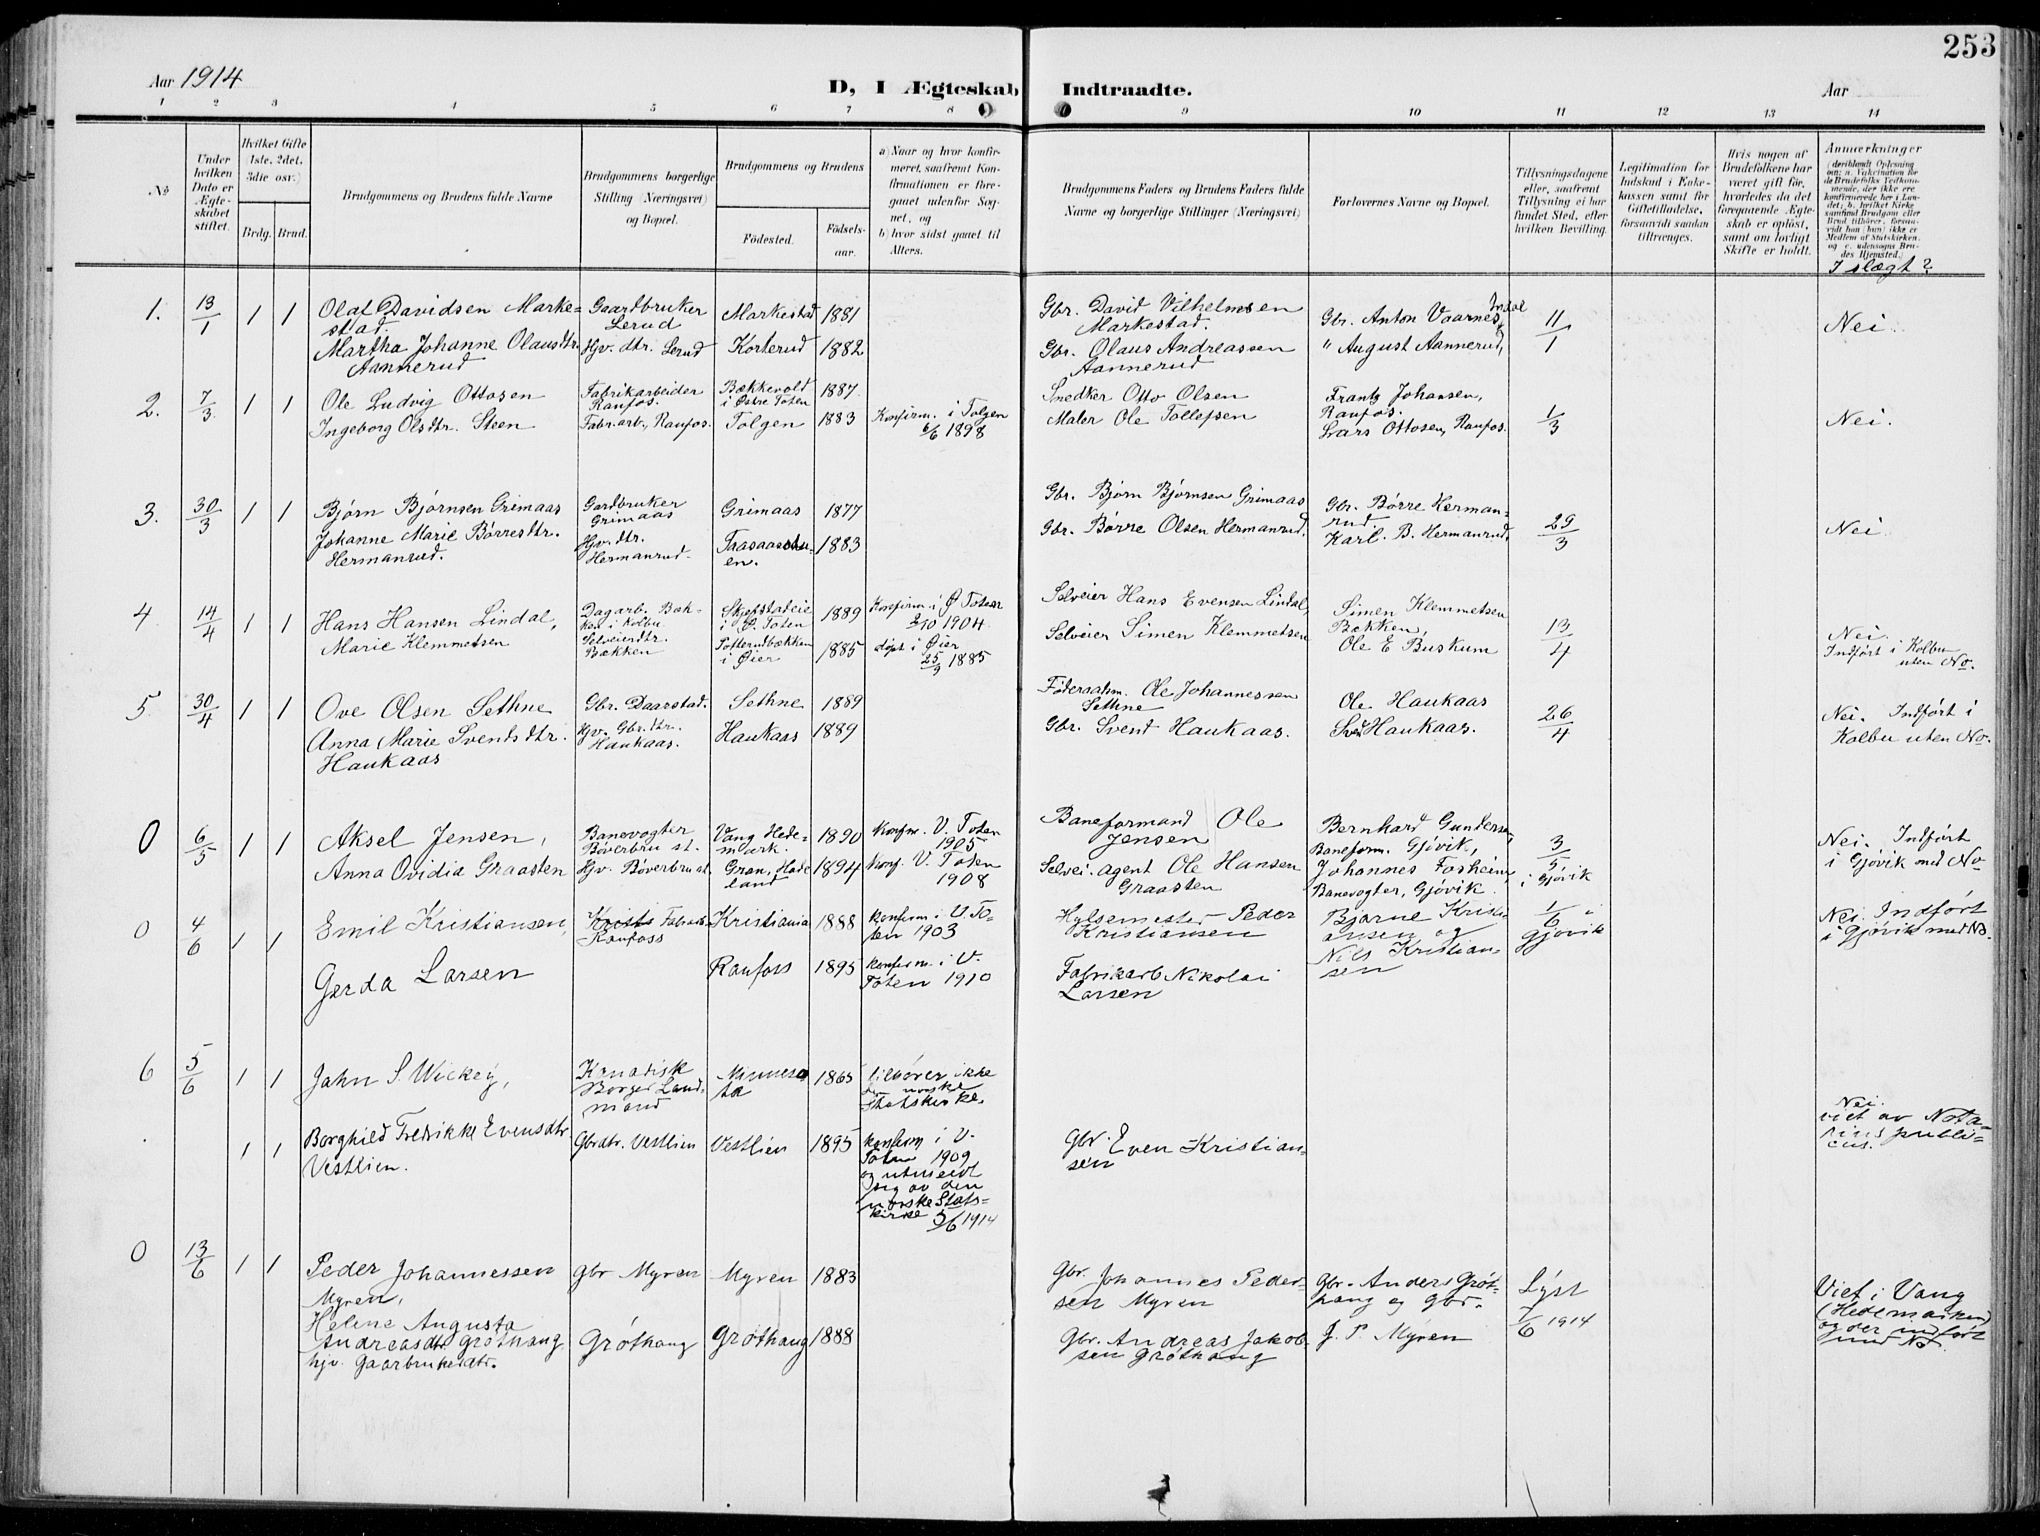 253
Aar 1914
D, I Ægteskab Indtraadte.
Aar
1 2 3 4 5 6 7 8 9 10 11 12 13 14
No
Under hvilken Dato er Ægteskabet stiftet.
Hvilket Gifte 1ste, 2det, 3die osv.)
Brdg. Brud.
Brudgommens og Brudens fulde Navne
Brudgommens borgerlige Stilling (Næringsvei) og Bopæl.
Brudgommens og Brudens
Fødested.
Fødsels-aar.
a) Naar og hvor konfirmeret, saafremt Konfirmationen er foregaaet udenfor Sognet, og
b) hvor sidst gaaet til Alters.
Brudgommens Faders og Brudens Faders fulde Navne og borgerlige Stillinger (Næringsvei)
Forlovernes Navne og Bopæl.
Tillysningsdagene eller, saafremt Tillysning ei har fundet Sted, efter hvilken Bevilling.
Legitimation for Indskud i Enkekassen samt for Giftetilladelse, forsaavidt saadan tiltrænges.
Hvis nogen af Brudefolkene har været gift før, hvorledes da det foregaaende Ægteskab er opløst, samt om lovligt Skifte er holdt.
Anmerkninger
(deriblandt Oplysning om: a. Vakcination for de Brudefolks Vedkommende, der ikke ere konfirmerede her i Landet; b. hvilket Kirkesamfund Brudgom eller Brud tilhører, forsaavidt han (hun) ikke er Medlem af Statskirken, og c. udensogns Brudes Hjemsted.)
I slægt?
1. 13/1 1 1 Olaf Davidsen Marke=
stad.
Gaardbruker
Lerud
Markestad 1881
Gbr. David Vilhelmsen
Markestad.
Gbr. Anton Vaarnes, Indal
11/1
Nei.
Martha Johanne Olausdtr.
Aannerud
Hjv. dtr. Lerud
Korterud 1882
Gbr. Olaus Andreassen
Aannerud
" August Aannerud,
2. 7/3 1 1 Ole Ludvig Ottosen
Fabrikarbeider
Raufos.
Bækkevold
i Østre Toten
1887
Snedker Otto Olsen
Frantz Johansen,
Raufos.
1/3
Nei.
Ingeborg Olsdtr. Steen
Fabr.arb., Raufos.
Tolgen 1883
Konfirm. i Tolgen
6/6 1898
Maler Ole Tollefsen
Lars Ottosen, Raufos.
3. 30/3 1 1 Bjørn Bjørnsen Grimaas
Gardbruker
Grimaas
Grimaas 1877
Gbr. Bjørn Bjørnsen Grimaas
Gbr. Børre Herman-
rud
29/3
Nei.
Johanne Marie Børresdtr.
Hermanrud.
Hjv. dtr.
Hermanrud.
1883
Gbr. Børre Olsen Hermanrud.
Karl. B. Hermanrud.
4 14/4 1 1 Hans Hansen Lindal,
Dagarb. Bæk-
ken i Kolbu
Skjefstadeie
i Ø. Toten
1889
Konfirm. i Ø Toten
2/10 1904.
Selveier Hans Evensen Lindal,
Simen Klemmetsen
Bækken,
13/4
Nei.
Indført i Kolbu
uten No.
Marie Klemmetsen
Selveierdtr.
Bækken
i Øier
1885
døpt i Øier
25/3 1885
Selveier Simen Klemmetsen
Ole E Buskum
5 30/4 1 1 Ove Olsen Sethne
Gbr. Daarstad.
Sethne 1889
Føderaadsm. Ole Johannessen
Sethne
Ole Haukaas
26/4
Nei. Indført i
Kolbu uten No.
Anna Marie Svendsdtr.
Haukaas
Hjv. Gbr. dtr.
Haukaas.
Haukaas 1889
Gbr. Svend Haukaas.
Haukaas.
0 6/5 1 1 Aksel Jensen,
Banevogter
Bøverbru st.
Vang Hede-
mark.
1890
Konfirm. V. Toten
1905
Baneformand Ole
Jensen
Bernhard Gundersen,
Baneform. Gjøvik,
3/5
i Gjøvik
Nei. Indført
i Gjøvik med No
Anna Ovidia Graasten
Hjv. Bøverbru st.
Gran, Hade
land
1894
Konf. V. Toten
1908
Selvei. agent Ole Hansen
Graasten
Johannes Fosheim,
Banevogter, Gjøvik.
0 4/6 1 1 Emil Kristiansen,
Raufoss
Kristiania 1888
konfirm i V. To-
ten 1903
Hylsemester Peder
Kristiansen
Bjarne Kristi-
ansen og
1/6 i
Gjøvik
Nei. Indført
i Gjøvik med No.
Gerda Larsen
Raufoss 1895
konfirm. i V.
Toten 1910
Fabrikarb Nikolai
Larsen
Nils Kristian-
sen
6 5/6 1 1 John S. Wickey,
Knadisk
Borger Land-
mand
Minneso
ta
1865
tilhører ikke
den norske
Statskirke.
Nei.
viet av Nota-
rius publi-
cus.
1 1 Borghild Fredrikke Evensdtr
Vestlien.
Gbrdtr. Vestlien
Vestlien 1895
konfirm i V.
Toten 1909
og utmeldt
sig av den
norske Stats-
kirke 5/6 1914
Gbr. Even Kristian-
sen
0 13/6 1 1 Peder Johannessen
Myren,
Gbr Myren
Myren 1883
Gbr. Johannes Peder-
sen Myren
Gbr. Anders Grøt-
haug og Gbr.
Lyst
7/6 1914
Viet i Vang
(Hedemarken)
og der indført
med No.
Helene Augusta
Andreasdtr Grøthaug
hjv. Gaarbrukerdtr.
Grøthaug
Grøthaug 1888
Gbr. Andreas Jakob-
sen Grøthaug
J. P. Myren